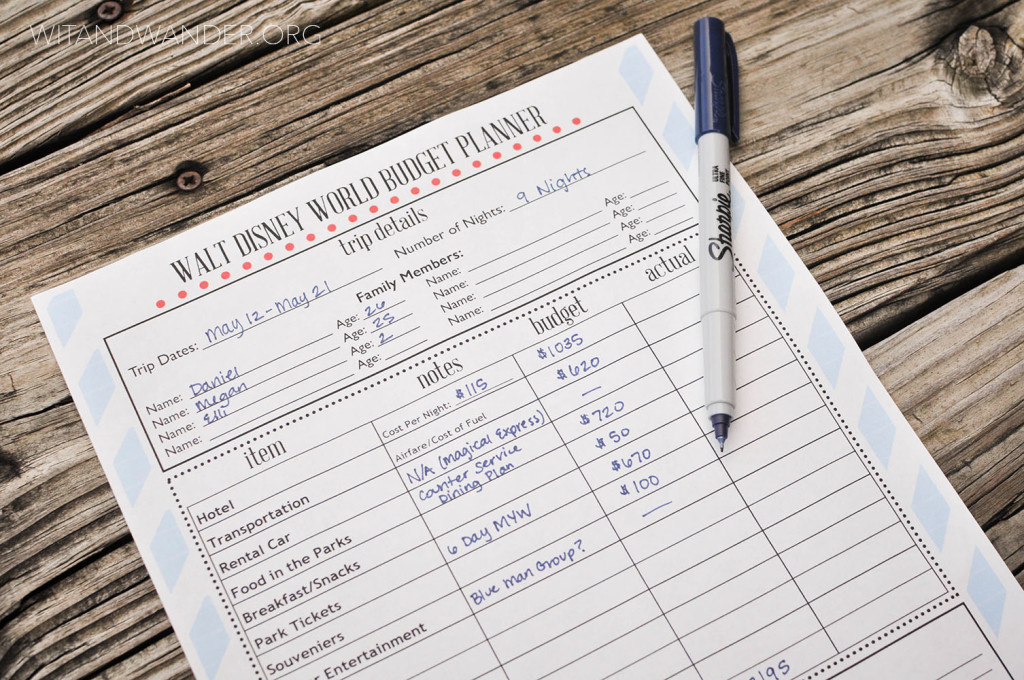 WITANDWANDER.ORG
WALT DISNEY WORLD BUDGET PLANNER
trip details
Trip Dates: May 12-May 21 Number of Nights: 9 Nights
Family Members:
Name: Daniel Age: 26 Name: Age:
Name: Megan Age: 25 Name: Age:
Name: Elli Age: 2 Name: Age:
Name: Age: Name: Age:
item notes budget actual
Hotel Cost Per Night: $115 $1035
Transportation Airfare/Cost of Fuel $620
Rental Car N/A (Magical Express) —
Food in the Parks Counter Service Dining Plan $720
Breakfast/Snacks $50
Park Tickets 6 Day MYW $670
Souveniers $100
Entertainment Blue Man Group? —
Sharpie
ULTRA FINE